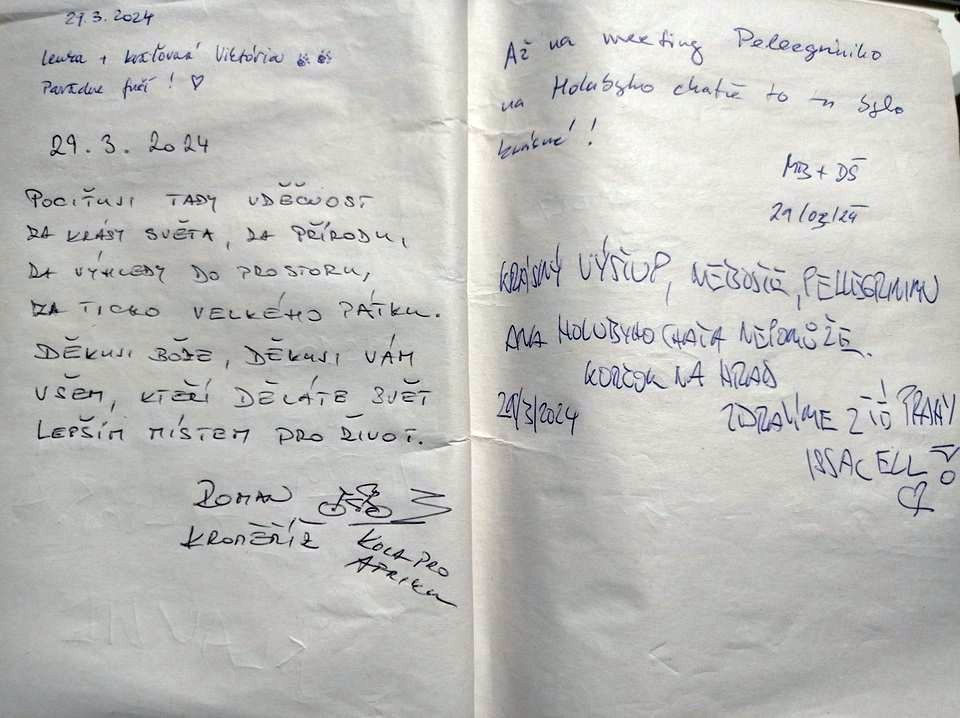 29.3.2024
Leura + kvxťovaá Viktória
Paradne fučí! ♡
29.3.2024
POCIŤUJI TADY VDĚČNOST
ZA KRÁSY SVĚTA, ZA PŘÍRODU,
ZA VÝHLEDY DO PROSTORU,
ZA TICHO VELKÉHO PÁTKU.
DĚKUJI BOŽE, DĚKUJI VÁM
VŠEM, KTEŘÍ DĚLÁTE SVĚT
LEPŠÍM MÍSTEM PRO ŽIVOT.
ROMAN
KROMĚŘÍŽ
KOLA PRO
AFRIKU
Až na meeting Pelegriniho
na Holubyho chatě to tu bylo
krásné!!
MB + DŠ
29/03/24
KRÁSNÝ VÝSTUP, NEBOJTE, PELLEGRINIMU
ANA HOLUBYHO CHATA NEPOMŮŽE.
KORČOK NA HRAD
29/3/2024
ZDRAVÍME Z PRAHY
ISSAC ELL
CZ